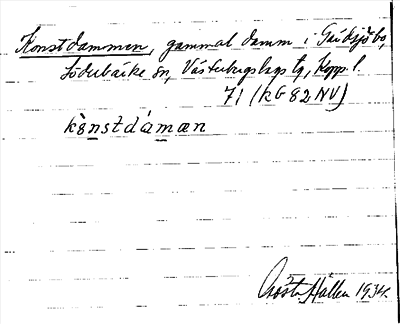 Konstdammen, gammal damm i Gräksjöbo,
Söderbärke sn, Västerbergslags tg, Kopp. l.
71 (kG 82 NV)
kònstdámæn
Gösta Hallen 1934.